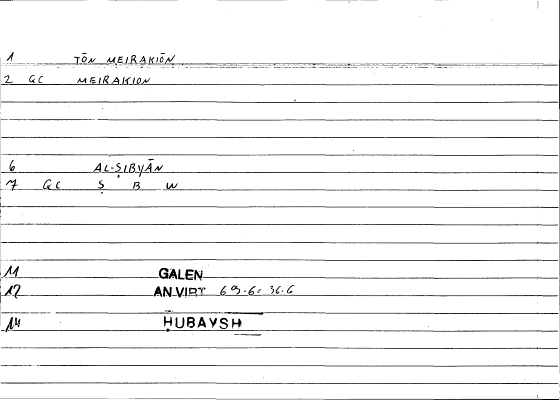 1 TŌN MEIRAKIŌN
2 GC MEIRAKION
6 AL-ṢIBYĀN
7 GC Ṣ B W
11 GALEN
12 AN.VIRT 69.6= 36.6
14 ḤUBAYSH